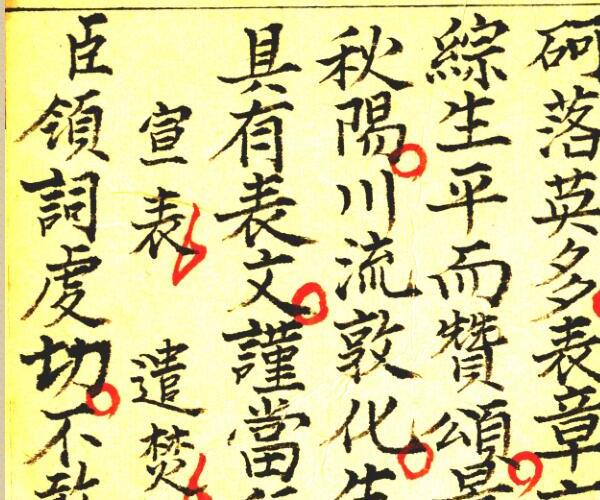 砢落英多表章
綜生平而贊頌
秋陽川流敦化
具有表文謹當
宣表 遣焚
臣領詞虔切不敢